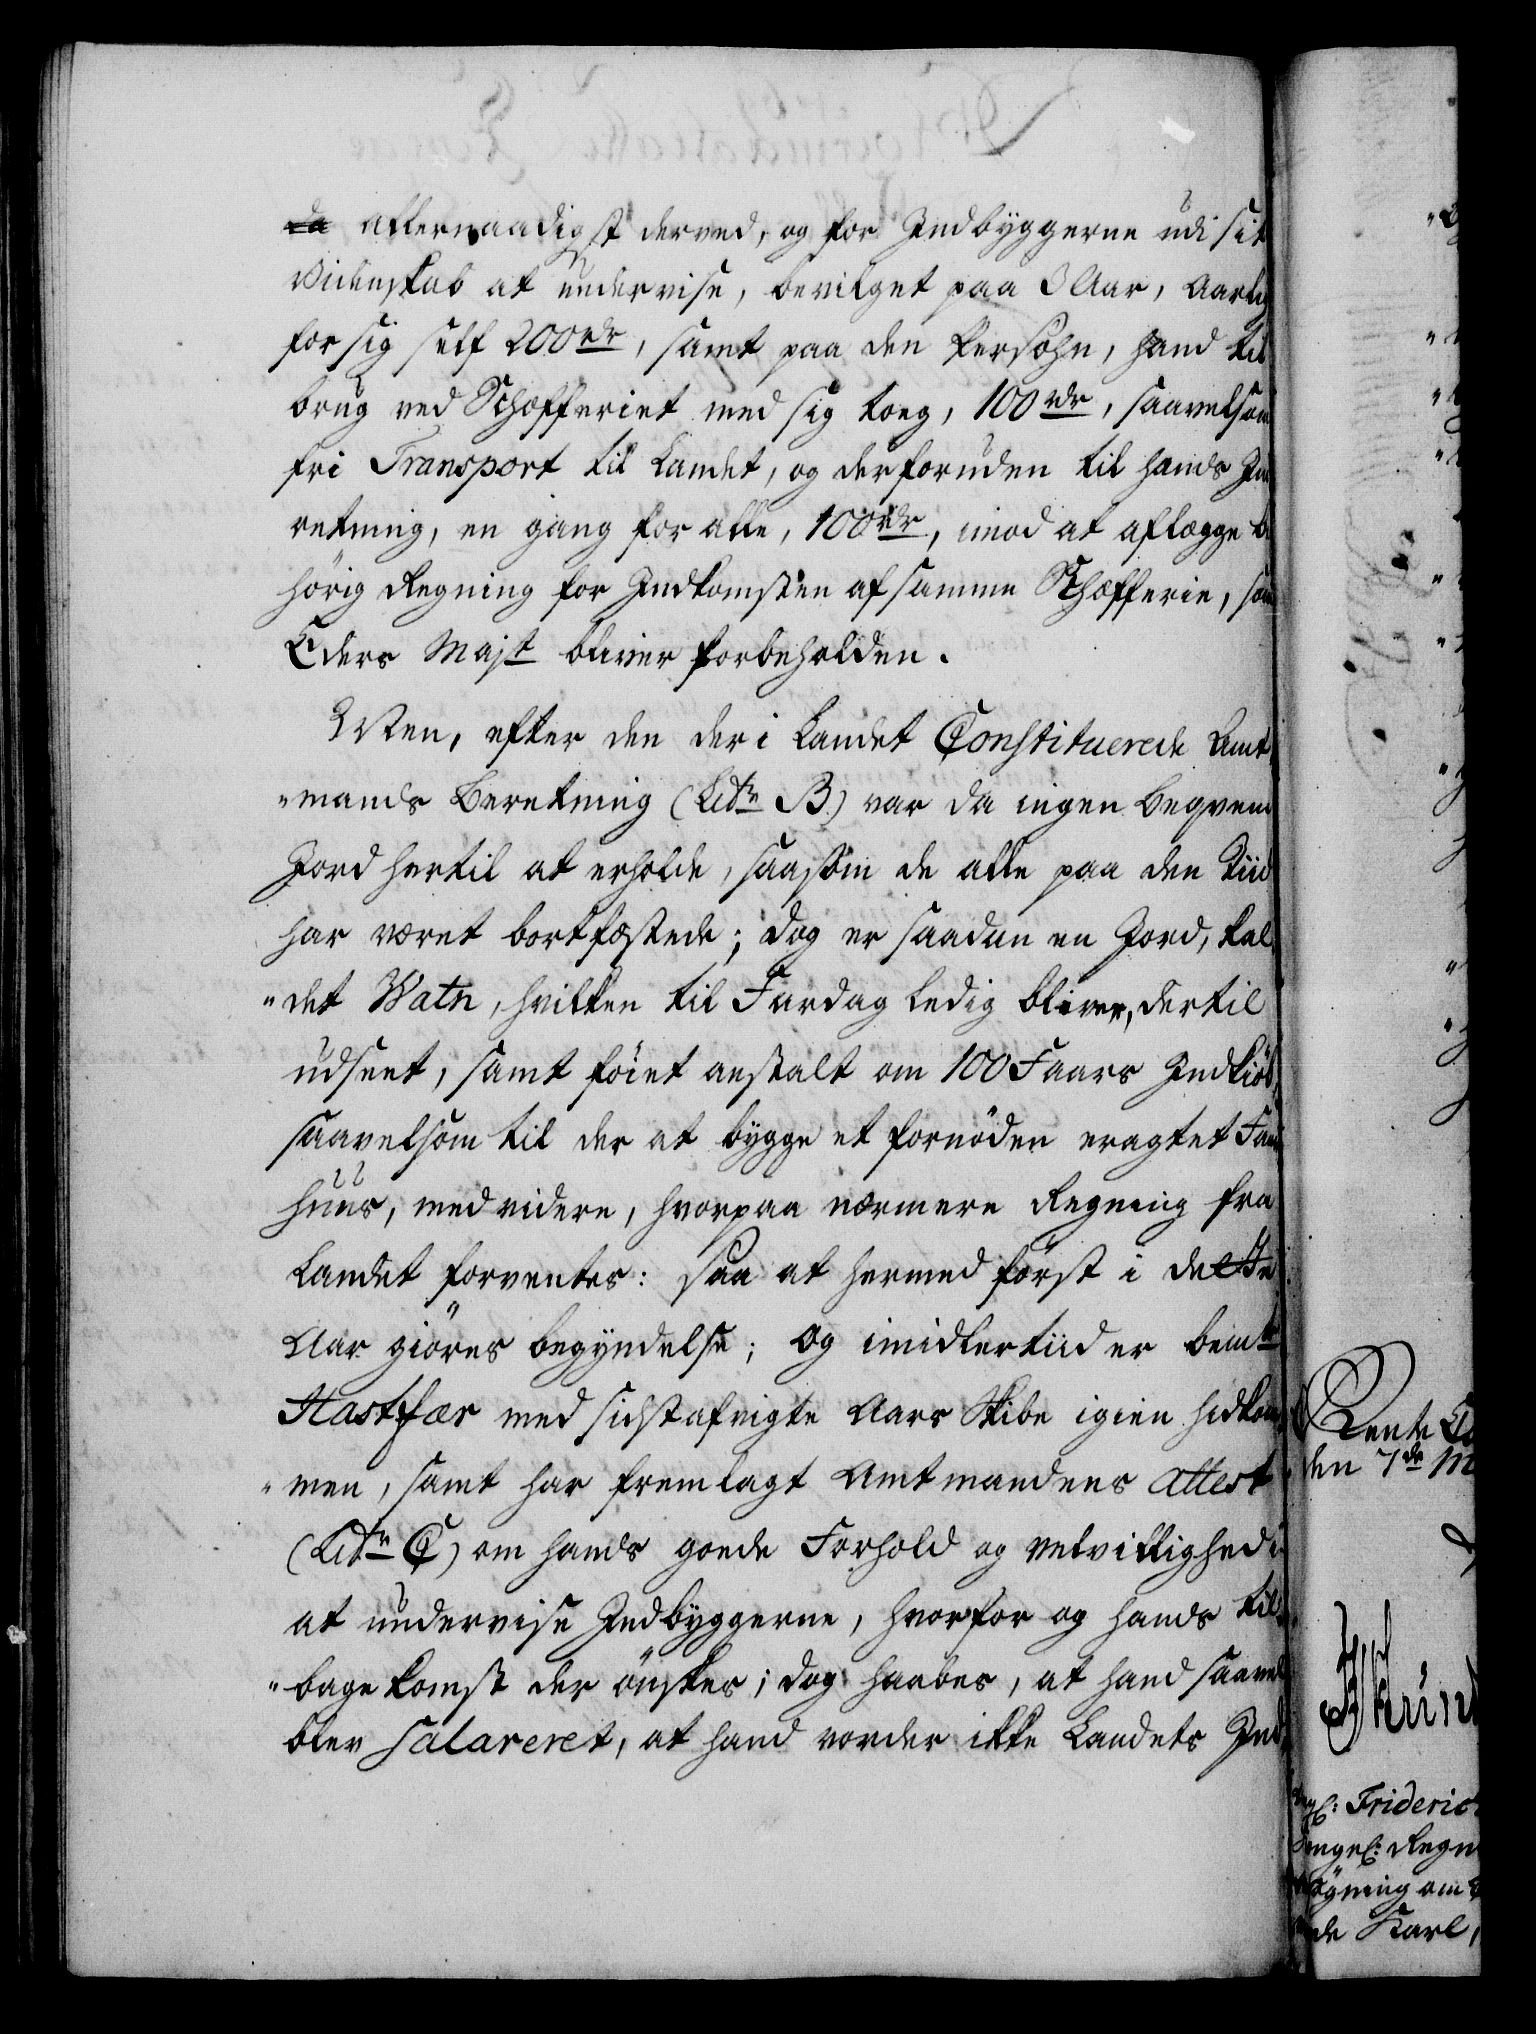 da allernaadigst derved, og for Indbyggerne udi sit
Videnskab at undervise, bevilget paa 3 Aar, Aarlig
for sig self 200 rdr, samt paa den Persohn, hand til
brug ved Schæfferiet med sig toeg, 100 rdr, saavelsom
fri Transport til Landet, og derforuden til hands Ind
retning, en gang for alle, 100 rdr, imod at aflægge be
hörig Regning for Indkomsten af samme Schæfferie, som
Eders Majst bliver forbeholden.
Men, efter den der i Landet Constituerede Amt
mands Beretning (Litr B.) var da ingen beqvem
Jord hertil at erholde, saasom de alle paa den Tiid
har været bortfæstede; dog er saadan en Jord, kal
det Watn, hvilken til Fardag ledig bliver, dertil
udseet, samt föiet anstalt om 100 Faars Indkiöb,
saavelsom til der at bygge et fornöden eragtet Faare
huus, med videre, hvorpaa nærmere Regning fra
Landet forventes: saa at hermed först i dette
Aar giöres begyndelse; og imidlertiid er bemte
Hastfær med sidstafvigte Aars Skibe igien hidkom
men, samt har fremlagt Amtmandens Attest
(Litr C) om hands goede Forhold og velvillighed i
at undervise Indbyggerne, hvorfor og hands til
bagekomst der önskes; dog haabes, at hand saavel
blev salareret, at hand vorder ikke Landets Ind
Rente
den 7de M
Frideric
Regn
om
Karl,